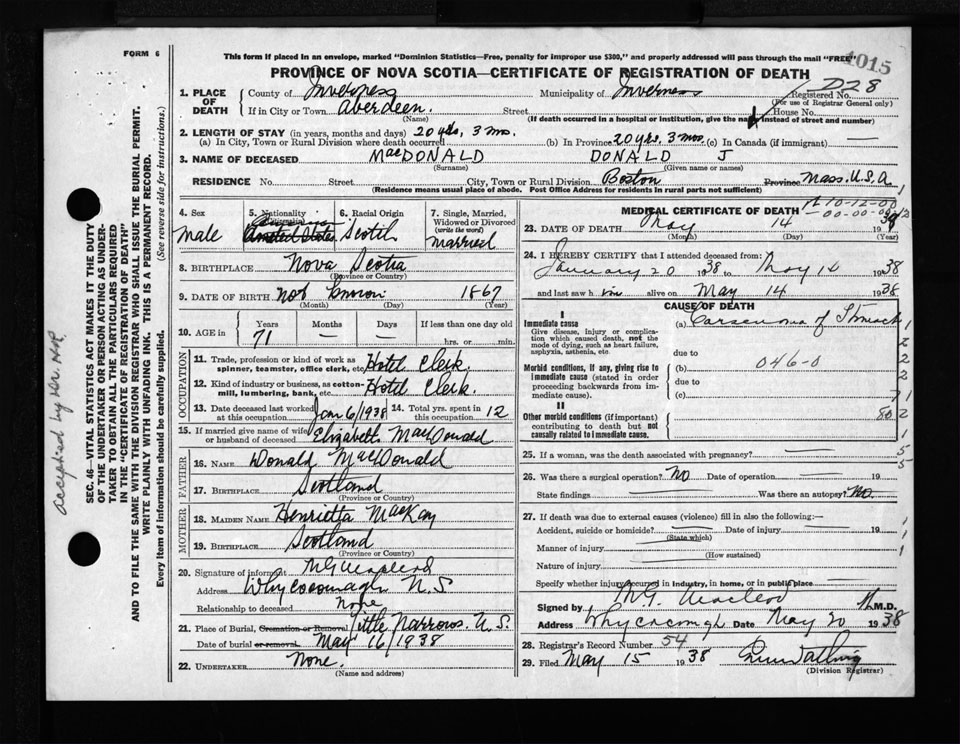 FORM 6
This form if placed in an envelope, marked "Dominion Statistics—Free, penalty for improper use $300," and properly addressed will pass through the mail "FREE"
1015
PROVINCE OF NOVA SCOTIA—CERTIFICATE OF REGISTRATION OF DEATH
1. PLACE OF DEATH County of Inverness Municipality of Inverness Registered No. 228
(For use of Registrar General only)
If in City or Town Aberdeen. Street House No.
(Name) (If death occurred in a hospital or institution, give the name instead of street and number)
2. LENGTH OF STAY (in years, months and days) 20 yds, 3 mo.
(a) In City, Town or Rural Division where death occurred (b) In Province 20 yrs. 3 mos. (c) In Canada (if immigrant) —
3. NAME OF DECEASED MacDONALD DONALD J
(Surname) (Given name or names)
RESIDENCE No. Street City, Town or Rural Division Boston Province Mass. U.S.A. 1
(Residence means usual place of abode. Post Office Address for residents in rural parts not sufficient)
4. Sex
male
5. Nationality
Citizenship
United States
6. Racial Origin
Scotch
7. Single, Married, Widowed or Divorced
(write the word)
married
8. BIRTHPLACE Nova Scotia
(Province or Country)
9. DATE OF BIRTH not known 1867
(Month) (Day) (Year)
10. AGE in Years Months Days If less than one day
71 — — hrs. or min.
OCCUPATION
11. Trade, profession or kind of work as spinner, teamster, office clerk, etc. Hotel Clerk.
12. Kind of industry or business, as cotton-mill, lumbering, bank, etc. Hotel Clerk
13. Date deceased last worked at this occupation Jan 6/1938 14. Total yrs. spent in this occupation 12
15. If married give name of wife or husband of deceased Elizabeth MacDonald
FATHER
16. NAME Donald MacDonald
17. BIRTHPLACE Scotland
(Province or Country)
MOTHER
18. MAIDEN NAME Henrietta MacKay
19. BIRTHPLACE Scotland
(Province or Country)
20. Signature of informant M G Macleod
Address Whycocomagh N.S
Relationship to deceased None
21. Place of Burial, Cremation or Removal Little Narrows. N.S.
Date of burial or removal May 16/1938
22. UNDERTAKER None.
(Name and address)
MEDICAL CERTIFICATE OF DEATH
10-12-00
00-00-00
23. DATE OF DEATH May 14 19
(Month) (Day) (Year)
24. I HEREBY CERTIFY that I attended deceased from:
January 20 1938 to May 14 1938
and last saw him alive on May 14 1938
CAUSE OF DEATH
I
Immediate cause
Give disease, injury or complication which caused death, not the mode of dying, such as heart failure, asphyxia, asthenia, etc.
(a) Carcinoma of Stomach
due to
Morbid conditions, if any, giving rise to immediate cause (stated in order proceeding backwards from immediate cause).
(b) 046-0
due to
(c)
II
Other morbid conditions (if important) contributing to death but not causally related to immediate cause.
80
25. If a woman, was the death associated with pregnancy? —
26. Was there a surgical operation? No Date of operation — 19
State findings — Was there an autopsy? No.
27. If death was due to external causes (violence) fill in also the following:—
Accident, suicide or homicide? — Date of injury — 19
(State which)
Manner of injury —
(How sustained)
Nature of injury —
Specify whether injury occurred in industry, in home, or in public place —
Signed by M G. Macleod M.D.
Address Whycocomagh Date May 20 1938
28. Registrar's Record Number 54
29. Filed May 15 1938
(Division Registrar)
SEC. 46—VITAL STATISTICS ACT MAKES IT THE DUTY OF THE UNDERTAKER OR PERSON ACTING AS UNDERTAKER TO OBTAIN ALL THE PARTICULARS REQUIRED IN THE "CERTIFICATE OF REGISTRATION OF DEATH" AND TO FILE THE SAME WITH THE DIVISION REGISTRAR WHO SHALL ISSUE THE BURIAL PERMIT.
WRITE PLAINLY WITH UNFADING INK. THIS IS A PERMANENT RECORD.
Every item of information should be carefully supplied. (See reverse side for instructions.)
accepted by